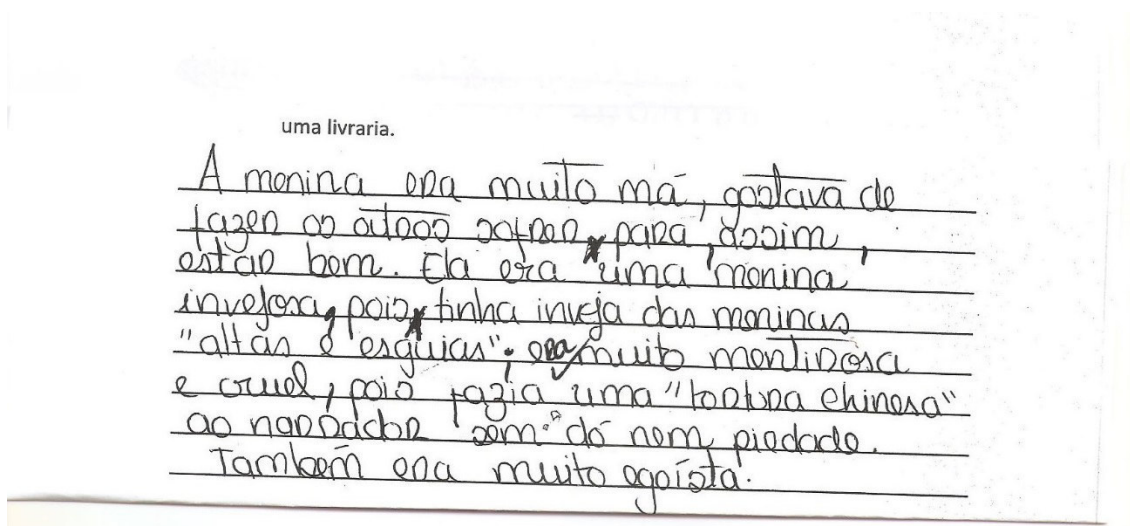 uma livraria.
A menina era muito má, gostava de
fazer os outros sofrer, para, assim,
estar bem. Ela era uma menina
invejosa, pois tinha inveja das meninas
"altas e esguias"; era muito mentirosa
e cruel, pois fazia uma "tortura chinesa"
ao narrador "sem" dó nem piedade.
Também era muito egoísta.